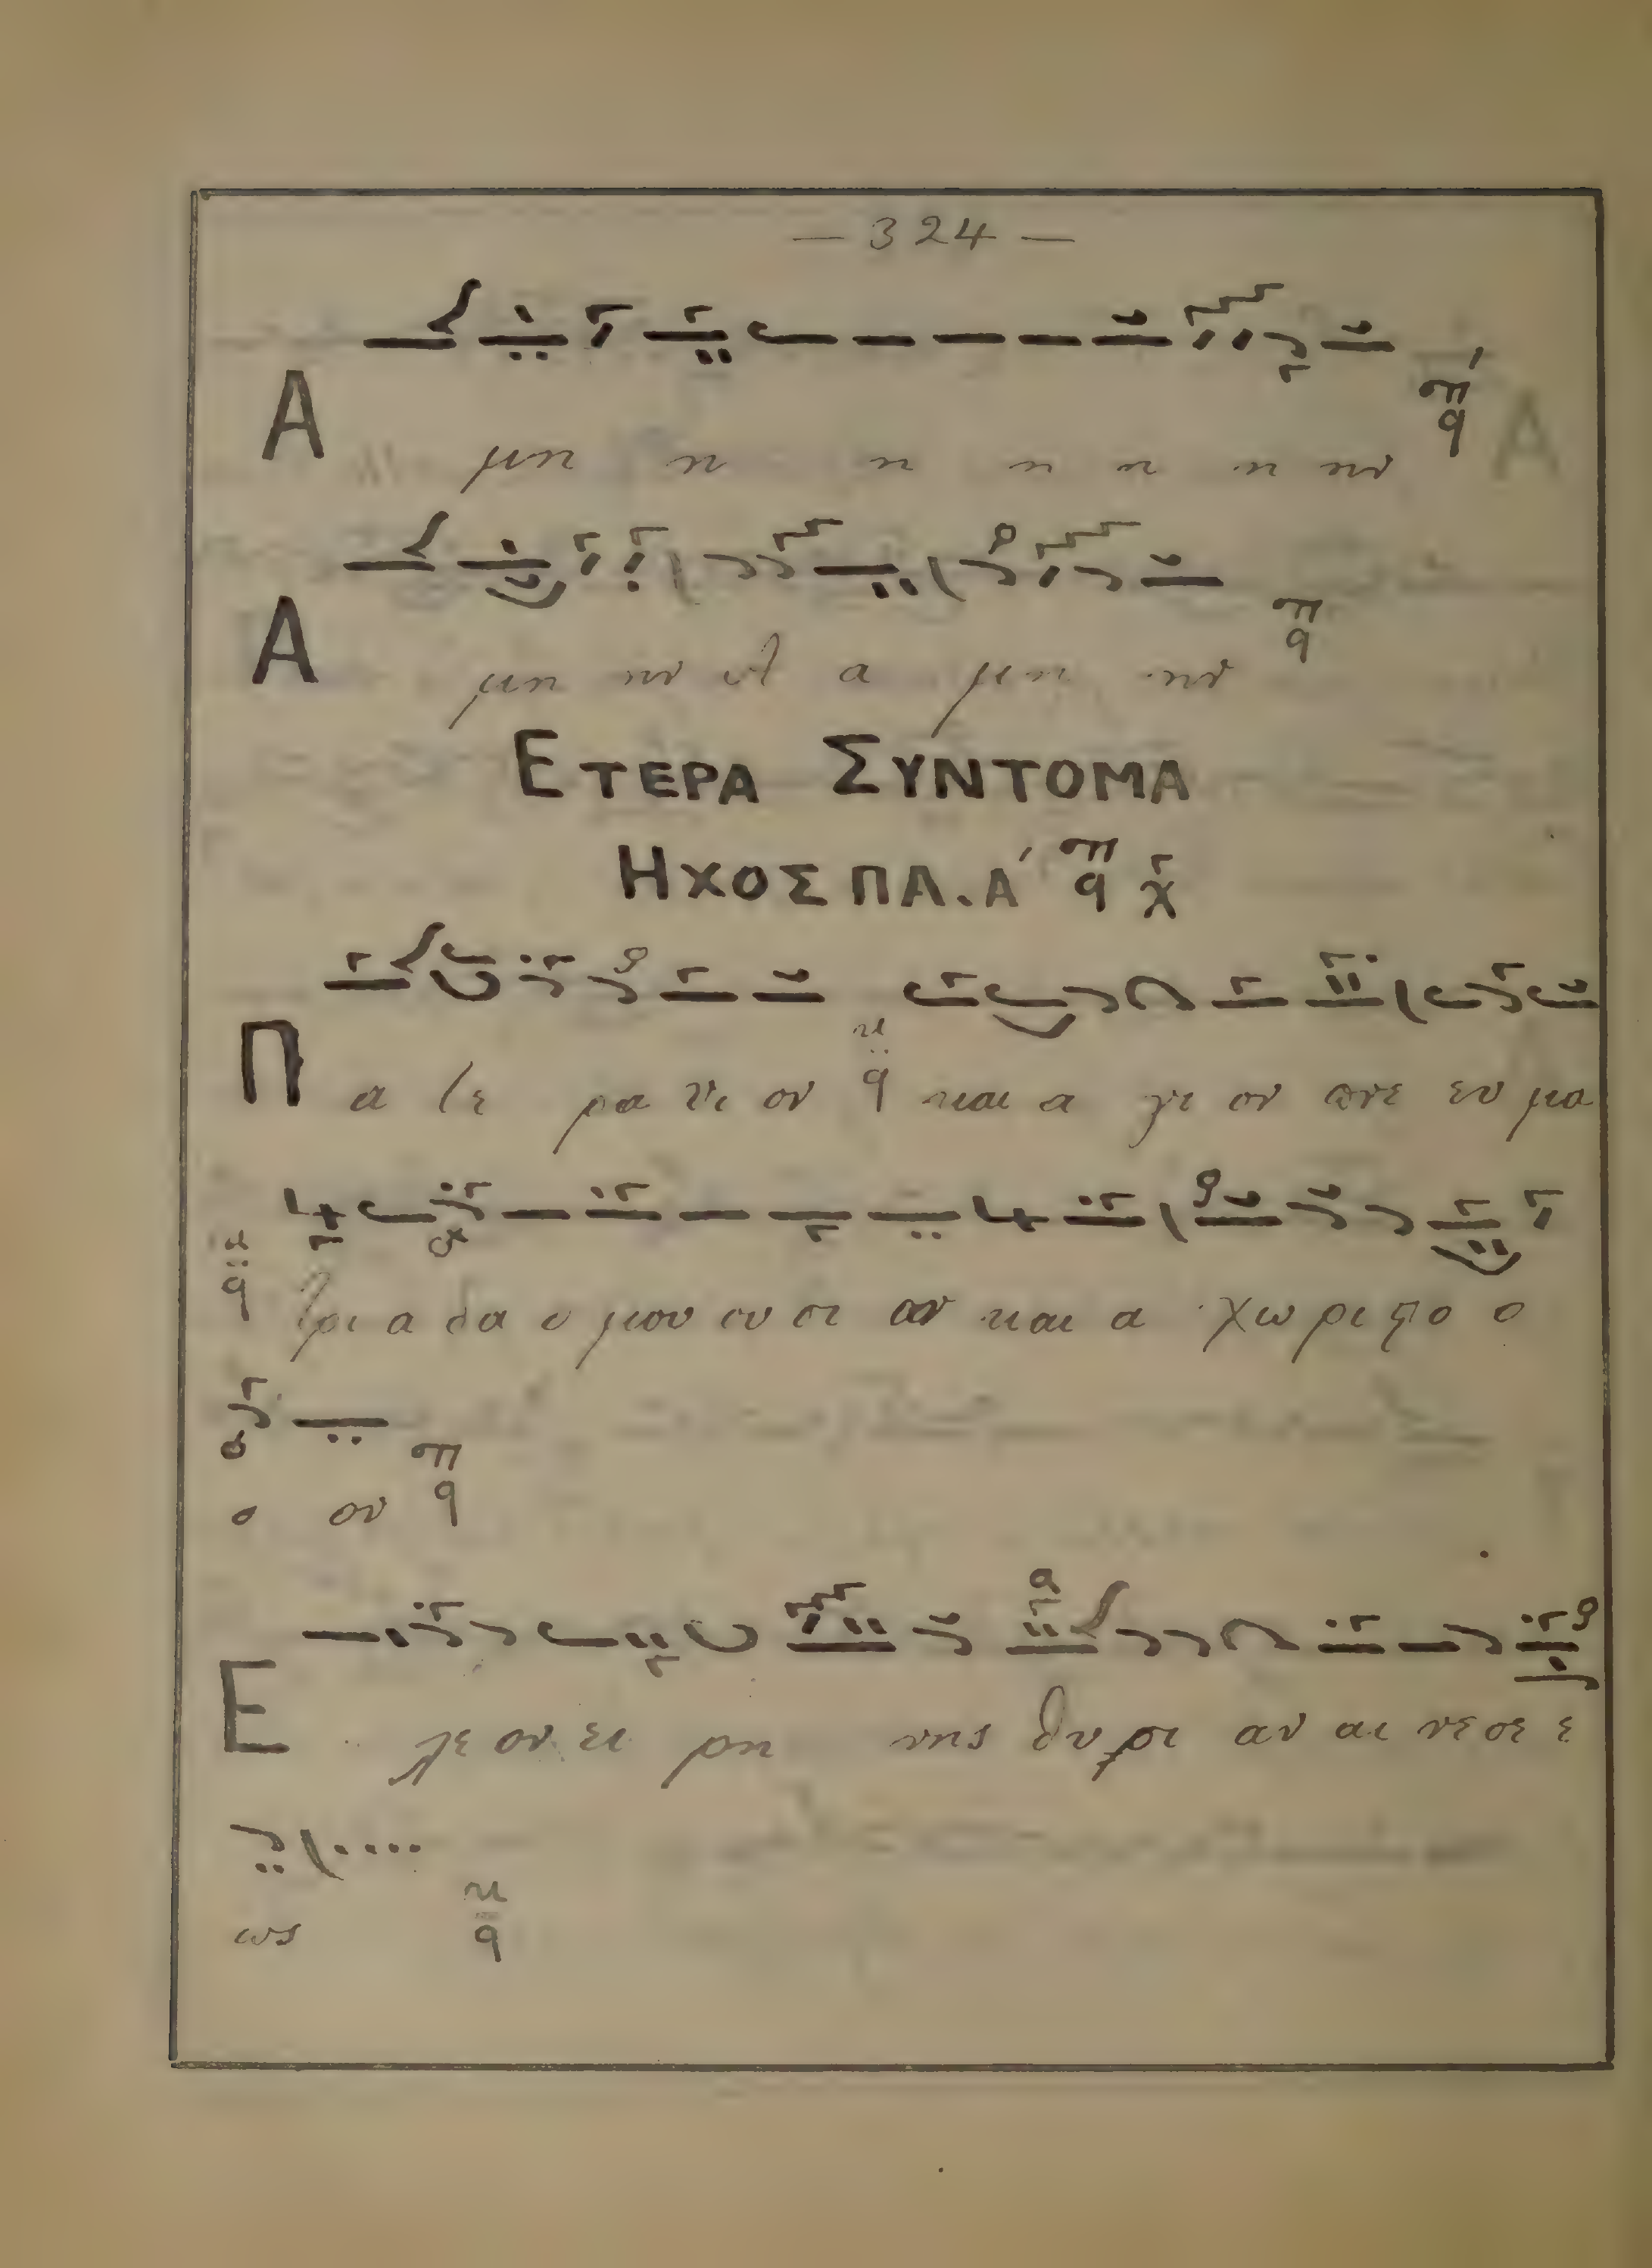 — 324 —
Α μη η η η η η ην
Α μη ην α μη ην
ΕΤΕΡΑ ΣΥΝΤΟΜΑ
ΗΧΟΣ ΠΛ. Α΄
Π α τε ρα υι ον και α γι ον πνε ευ μα
τρι α δα ο μου ου σι ον και α χω ρι στο ο
ο ον
Ε λε ον ει ρη νης θυ σι αν αι νε σε ε
ως